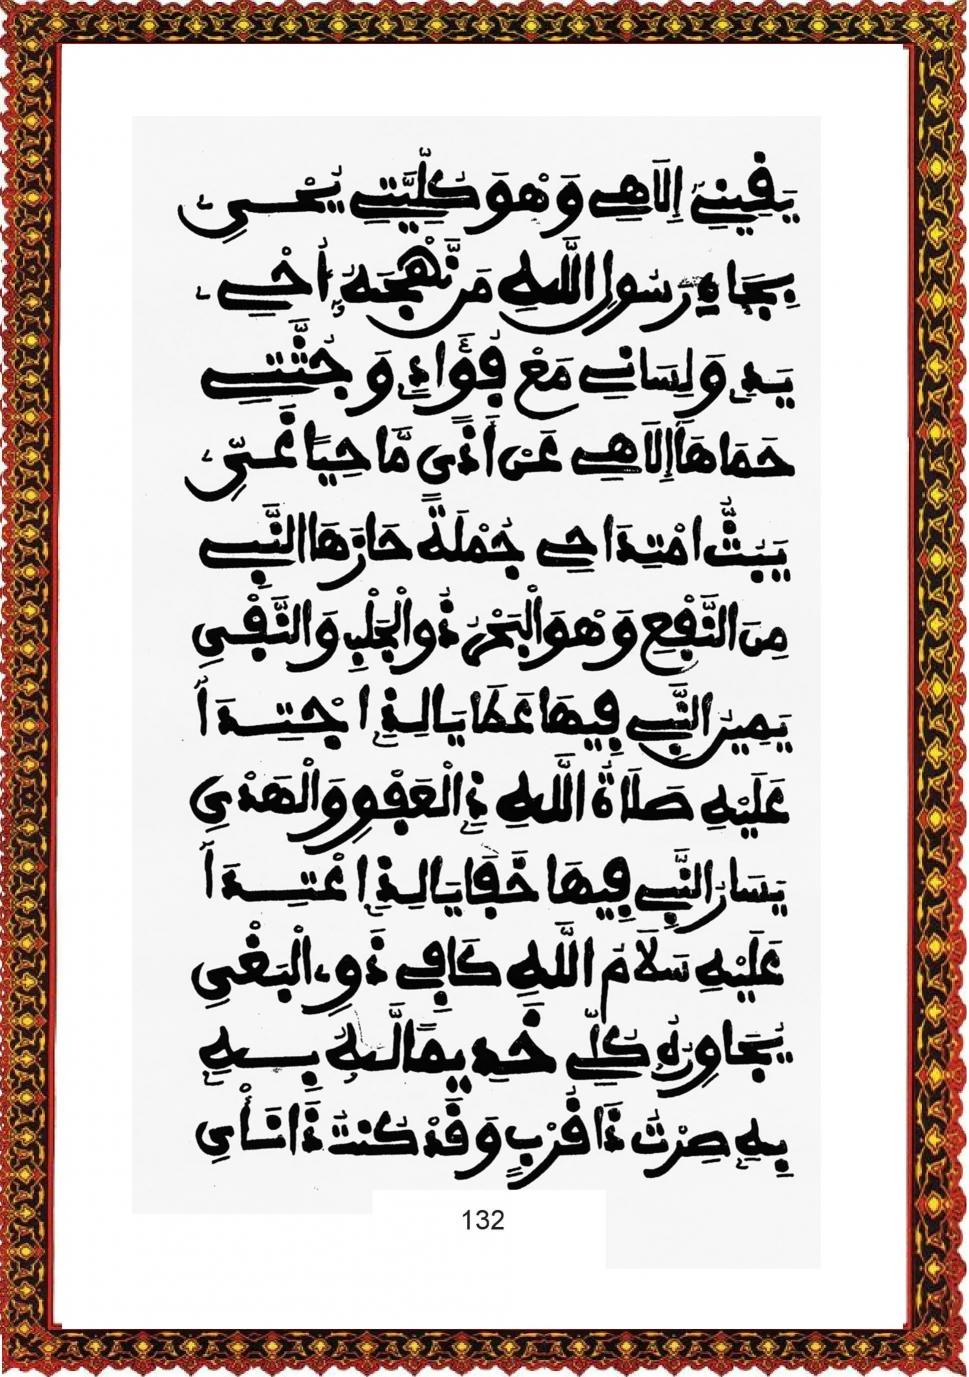 يَقِينِي إِلَاهِي وَهْوَ كُلِّيَّتِي يُحْيِي
بِجَاهِ رَسُولِ اللَّهِ مَن نَّهْجَهُ أُحْيِي
يَدِي وَلِسَانِي مَعْ فُؤَادِي وَجُثَّتِي
حَمَاهَا إِلَاهِي عَنْ أَذَى مَّاحِيًا غَيِّي
يَبُثُّ امْتِدَاحِي جُمْلَةً حَازَهَا النَّبِي
مِنَ النَّفْعِ وَهْوَ الْبَحْرُ ذُو الْجَلْبِ وَالنَّفْيِ
يَمِينُ النَّبِي فِيهَا عَطَايَا لِذِي اجْتِدَا
عَلَيْهِ صَلَاةُ اللَّهِ ذِي الْعَفْوِ وَالْهَدْيِ
يَسَارُ النَّبِي فِيهَا خَفَايَا لِذِي اعْتِدَا
عَلَيْهِ سَلَامُ اللَّهِ كَافِي ذَوِي الْبَغْيِ
يُجَاوِرُهُ كُلِّي خَدِيمًا لَّهُ بِهِ
بِهِ صِرْتُ ذَا قُرْبٍ وَقَدْ كُنتُ ذَا نَأْيِ
132